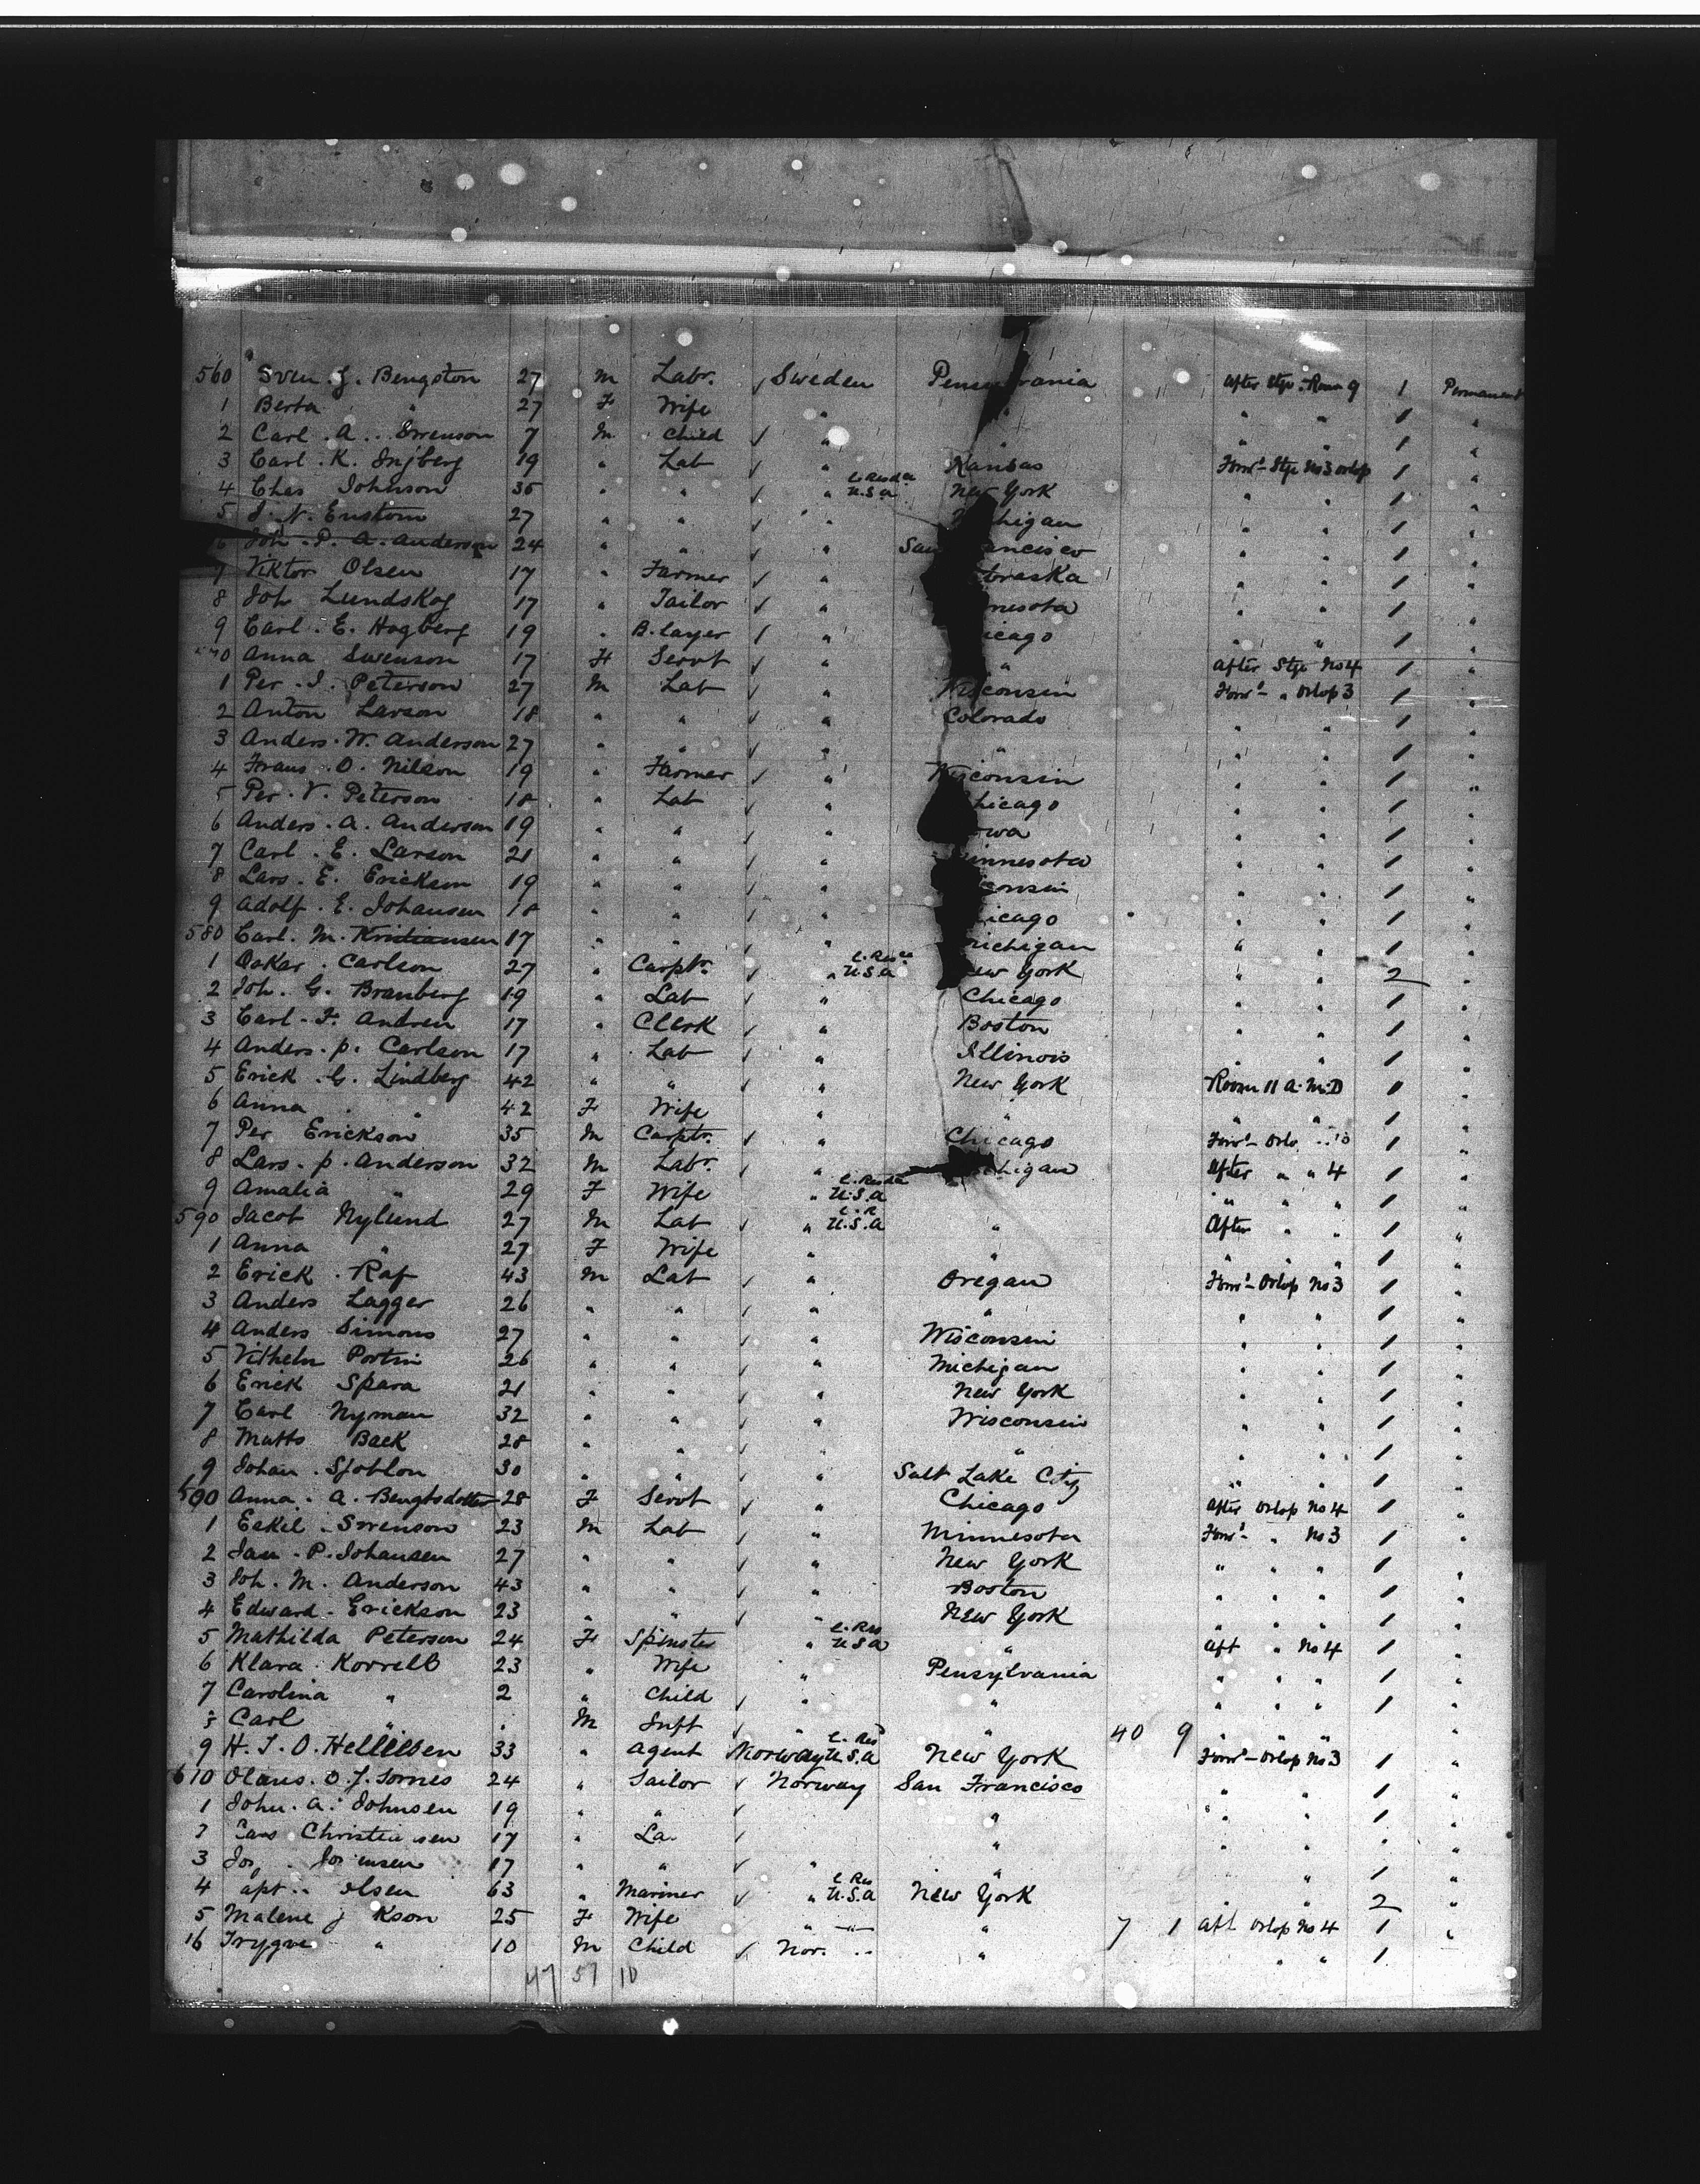 560 Sven J. Bengston 27 m Labr. ✓ Sweden Pensylvania After Stge Room 9 1 Permanent
1 Berta " 27 F Wife " " " " 1 "
2 Carl . A . Swenson 7 m Child ✓ " " " " 1 "
3 Carl . K. Injberg 19 " Lab ✓ " Kansas Forwd Stge No 3 orlop 1 "
4 Chas Johnson 35 " " ✓ " U.S.a New York " " 1 "
5 J. N. Enstom 27 " " ✓ " chigan " " 1 "
6 Joh . P. A. Anderson 24 " " " San ancisco " " 1 "
7 Viktor Olsen 17 " Farmer ✓ " braska " " 1 "
8 Joh Lundskog 17 " Tailor ✓ " nesota " " 1 "
9 Carl . E. Hogberg 19 " B. layer ✓ " icago " " 1 "
70 Anna Swenson 17 F Servt ✓ " " After Stge No 4 1 "
1 Per . J. Peterson 27 m Lab ✓ " Wisconsin Forwd " Orlop 3 1 "
2 Anton Larson 18 " " ✓ " Colorado " " 1 "
3 Anders . W. Anderson 27 " " ✓ " " " " 1 "
4 Frans . O. Nilson 19 " Farmer ✓ " Wisconsin " " 1 "
5 Per . V. Peterson 18 " Lab ✓ " hicago " " 1 "
6 Anders . A. Anderson 19 " " ✓ " owa " " 1 "
7 Carl . E. Larson 21 " " ✓ " innesota " " 1 "
8 Lars . E. Erickson 19 " " ✓ " consin " " 1 "
9 Adolf . E. Johansen 18 " " ✓ " icago " " 1 "
580 Carl . M. Kristiansen 17 " " ✓ " michigan " " 1 "
1 Oskar . Carlson 27 " Carptr. ✓ " U.S.a ew York " " 2 "
2 Joh. G. Branberg 19 " Lab ✓ " Chicago " " 1 "
3 Carl . F. Andren 17 " Clerk ✓ " Boston " " 1 "
4 Anders . p. Carlson 17 " Lab ✓ " Illinois " " 1 "
5 Erick . G. Lindberg 42 " " ✓ " New York Room 11 A.M.D 1 "
6 Anna " 42 F Wife " " " " 1 "
7 Per Erickson 35 m Carptr. ✓ " Chicago Forwd Orlo 1 "
8 Lars . p . Anderson 32 m Labr. ✓ " chigan After " " 4 1 "
9 Amalia " 29 F Wife " U.S.a " " " 1 "
590 Jacob Nylund 27 m Lab ✓ " U.S.a " After " " 1 "
1 Anna " 27 F Wife " " " " " 1 "
2 Erick . Raf 43 m Lab ✓ " Oregan Forwd Orlop No 3 1 "
3 Anders Lagger 26 " " ✓ " " " " 1 "
4 Anders Simons 27 " " ✓ " Wisconsin " " 1 "
5 Vilhelm Portin 26 " " ✓ " Michigan " " 1 "
6 Erick Spara 21 " " ✓ " New York " " 1 "
7 Carl Nyman 32 " " ✓ " Wisconsin " " 1 "
8 Matts Back 28 " " ✓ " " " " 1 "
9 Johan . Sjoblon 30 " " ✓ " Salt Lake City " " 1 "
600 Anna . A. Bengtsdotter 28 F Servt ✓ " Chicago After Orlop No 4 1 "
1 Eskel . Swenson 23 m Lab ✓ " Minnesota Forwd " No 3 1 "
2 Jan . P. Johansen 27 " " ✓ " New York " " " 1 "
3 Joh . M. Anderson 43 " " ✓ " Boston " " " 1 "
4 Edward . Erickson 23 " " ✓ " New York " " " 1 "
5 Mathilda Peterson 24 F Spinster " C. Res U S a " Aft " No 4 1 "
6 Klara . Korrell 23 " Wife " Pensylvania " " " 1 "
7 Carolina " 2 " Child ✓ " " " " " 1 "
8 Carl " M Inft ✓ " " 40 9 " " "
9 H. J. O. Hellesen 33 " Agent Norway C. Res U.S.a New York Forwd Orlop No 3 1 "
610 Olaus . O. J. Sornes 24 " Sailor ✓ Norway San Francisco " " 1 "
1 John . A. Johnsen 19 " " ✓ " " " 1 "
Christia sen 17 " La ✓ " "
3 Jo 17 " " ✓ " " " 1 "
4 apt . olsen 63 " Mariner ✓ " C. Res U.S.a New York " " 2 "
5 Malene J kson 25 F Wife " " " 7 1 Aft Orlop No 4 1 "
16 Trygve " 10 M Child ✓ Nor. " " " 1
47 57 10